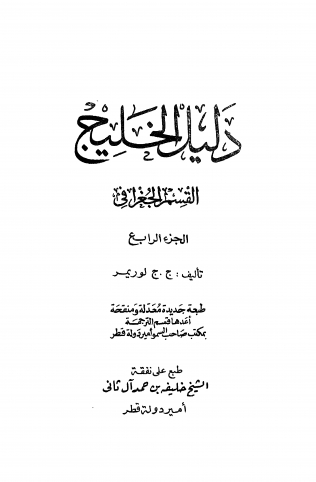 دليل الخليج
القسم الجغرافي
الجزء الرابع
تأليف : ج . ج لوريمر
طبعة جديدة معدلة ومنقحة
أعدها قسم الترجمة
بمكتب صاحب السمو أمير دولة قطر
طبع على نفقة
الشيخ خليفه بن حمد آل ثاني
أمير دولة قطر